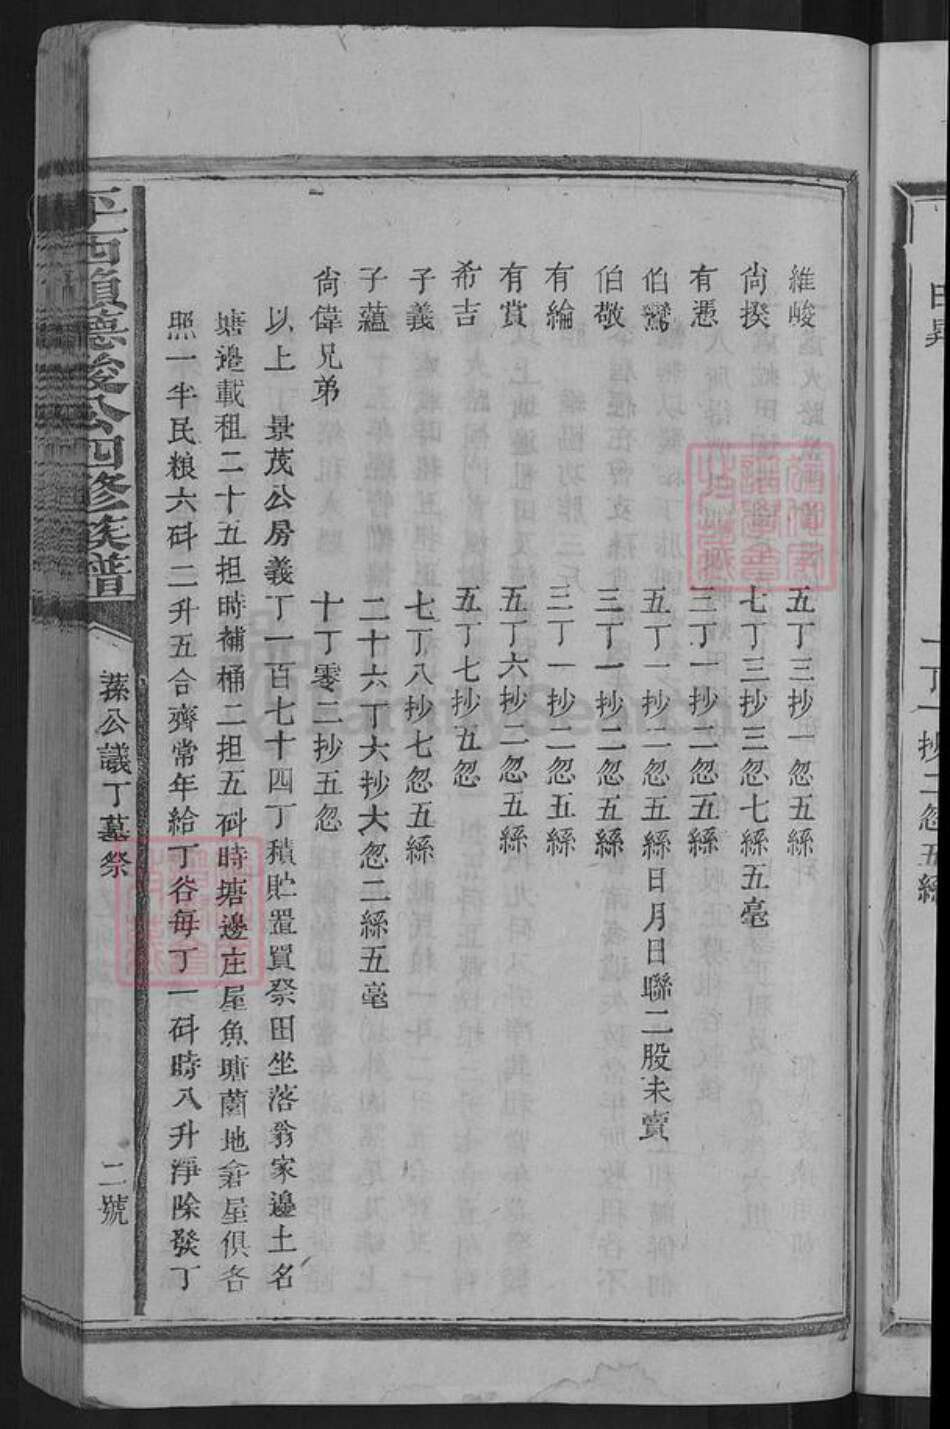 維峻 五丁三抄一忽五絲
尙揆 七丁三抄三忽七絲五毫
有憑 三丁一抄二忽五絲
伯鸞 五丁一抄二忽五絲日月日聯二股未賣
伯敬 三丁一抄二忽五絲
有綸 三丁一抄二忽五絲
有賞 五丁六抄二忽五絲
希吉 五丁七抄五忽
子義 七丁八抄七忽五絲
子蘊 二十六丁六抄大忽二絲五毫
尙偉兄弟 十丁零二抄五忽
以上 景茂公房義丁一百七十四丁積貯置買祭田坐落翁家邊土名
塘邊載租二十五担時補桶二担五斗時塘邊庄屋魚塘薗地倉屋俱各
照一半民粮六斗二升五合齊常年給丁谷每丁一斗時八升淨除發丁
平西頭德俊公四修族譜
蓀公議丁墓祭
二號
丁一抄二忽五絲